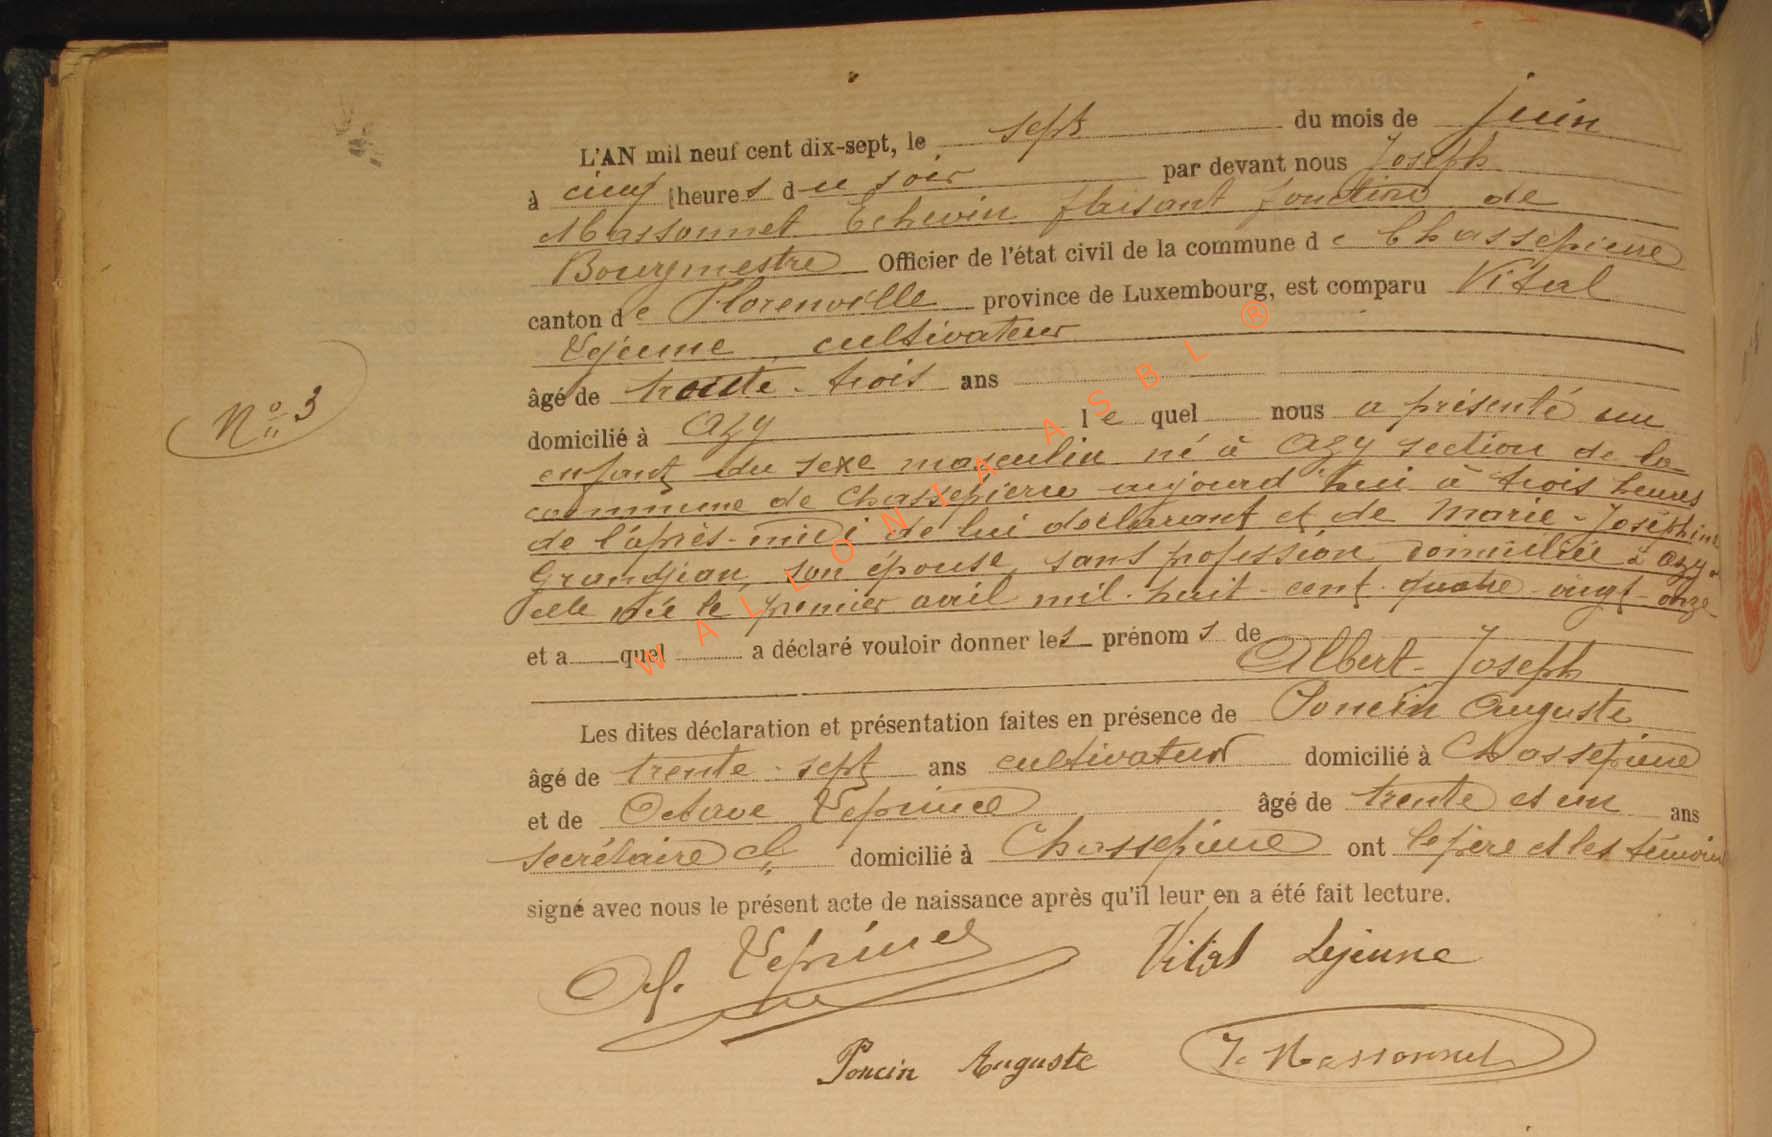 L'AN mil neuf cent dix-sept, le sept du mois de juin
à cinq heures du soir par devant nous Joseph
Massonnet Echevin faisant fonction de
Bourgmestre Officier de l'état civil de la commune de Chassepierre
canton de Florenville province de Luxembourg, est comparu Vital
Lejeune, cultivateur
âgé de trente-trois ans
N° 3
domicilié à Azy lequel nous a présenté un
enfant du sexe masculin né à Azy section de la
commune de Chassepierre aujourd'hui à trois heures
de l'après-midi de lui déclarant et de Marie-Joséphine
Grandjean, son épouse, sans profession domiciliée à Azy
elle née le premier avril mil-huit-cent-quatre-vingt-onze
et a quel a déclaré vouloir donner les prénoms de
Albert-Joseph
Les dites déclaration et présentation faites en présence de Poncin Auguste
âgé de trente-sept ans cultivateur domicilié à Chassepierre
et de Octave Leprince âgé de trente et un ans
secrétaire cl domicilié à Chassepierre ont le père et les témoins
signé avec nous le présent acte de naissance après qu'il leur en a été fait lecture.
Leprince Vital Lejeune
Poncin Auguste J. Massonnet
WALLONIA ASBL ®